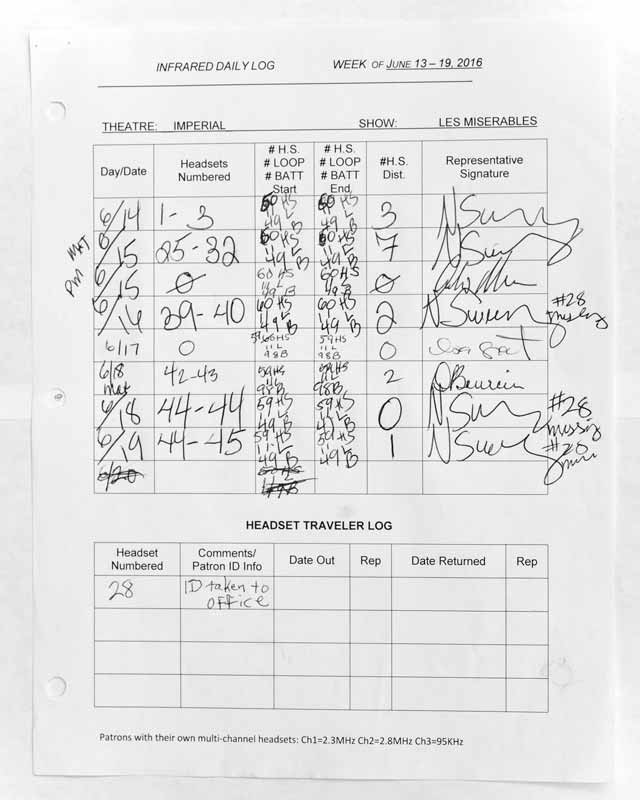 INFRARED DAILY LOG WEEK OF JUNE 13 – 19, 2016
THEATRE: IMPERIAL SHOW: LES MISERABLES
Day/Date Headsets Numbered # H.S. # LOOP # BATT Start # H.S. # LOOP # BATT End #H.S. Dist. Representative Signature
6/14 1-3 60 HS L 49 B 60 HS L 49 B 3
MAT 6/15 25-32 60 HS L 49 B 60 HS L 49 B 7
PM 6/15 0 60 HS 60 HS 0
6/16 39-40 60 HS L 49 B 60 HS L 49 B 2 #28 missing
6/17 0 11 L 98 B 59 HS 11 L 98 B 0
6/18 mat 42-43 59 HS 98B 59 HS 98B 2
6/18 44-44 59 HS L 49 B 59 HS L 0 #28 missing
6/19 44-45 59 HS 11 L 49 B 59 HS 11 L 49 B 1 #28
6/20
HEADSET TRAVELER LOG
Headset Numbered Comments/ Patron ID Info Date Out Rep Date Returned Rep
28 ID taken to office
Patrons with their own multi-channel headsets: Ch1=2.3MHz Ch2=2.8MHz Ch3=95KHz